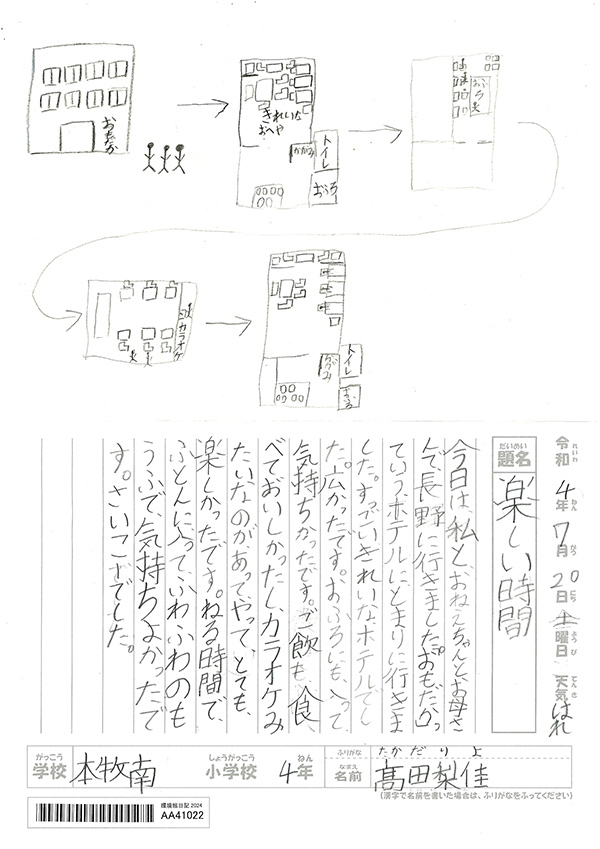 おもだか
きれいな
おへや
かがみ
トイレ
おふろ
おふろ
カラオケ
かがみ
トイレ
おふろ
令和 4年 7月 20日 土曜日 天気 はれ
れいわ ねん がつ にち ようび てんき
だいめい
題名
楽しい時間
今日は、私と、おねえちゃんと、お母さ
んで、長野に行きました。おもだかっ
ていうホテルにとまりに行きま
した。すっごいきれいなホテルでし
た。広かったです。おふろにも、入って、
気持ちかったです。ご飲も、食
べておいしかったし、カラオケみ
たいなのがあって、やって、とても、
楽しかったです。ねる時間で、
ふとんに入って、ふわふわのも
うふで、気持ちよかったで
す。さいこうでした。
がっこう
学校
本牧南
しょうがっこう
小学校
4年
ねん
ふりがな
たかだりよ
なまえ
名前
髙田梨佳
(漢字で名前を書いた場合は、ふりがなをふってください)
環境絵日記 2024
AA41022